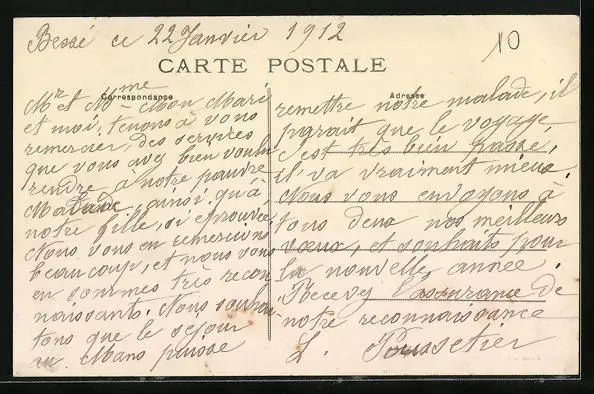 Bessé ce 22 Janvier 1912
10
CARTE POSTALE
Correspondance
Adresse
Mr et Mme Mon Mari
et moi, tenons à vous
remercier, des services
que vous avez bien voulu
rendre à notre pauvre
Malade, ainsi, qu'à
notre fille, si éprouvée,
Nous vous en remercions
beaucoup, et nous vous
en sommes très recon
naissants. Nous souhai
tons que le séjour
au Mans puisse
remettre notre malade, il
parait que le voyage
s'est très bien passé,
il va vraiment mieux.
Nous vous envoyons à
tous deux nos meilleurs
vœux, et souhaits pour
la nouvelle année.
Recevez l'assurance de
notre reconnaissance
L.